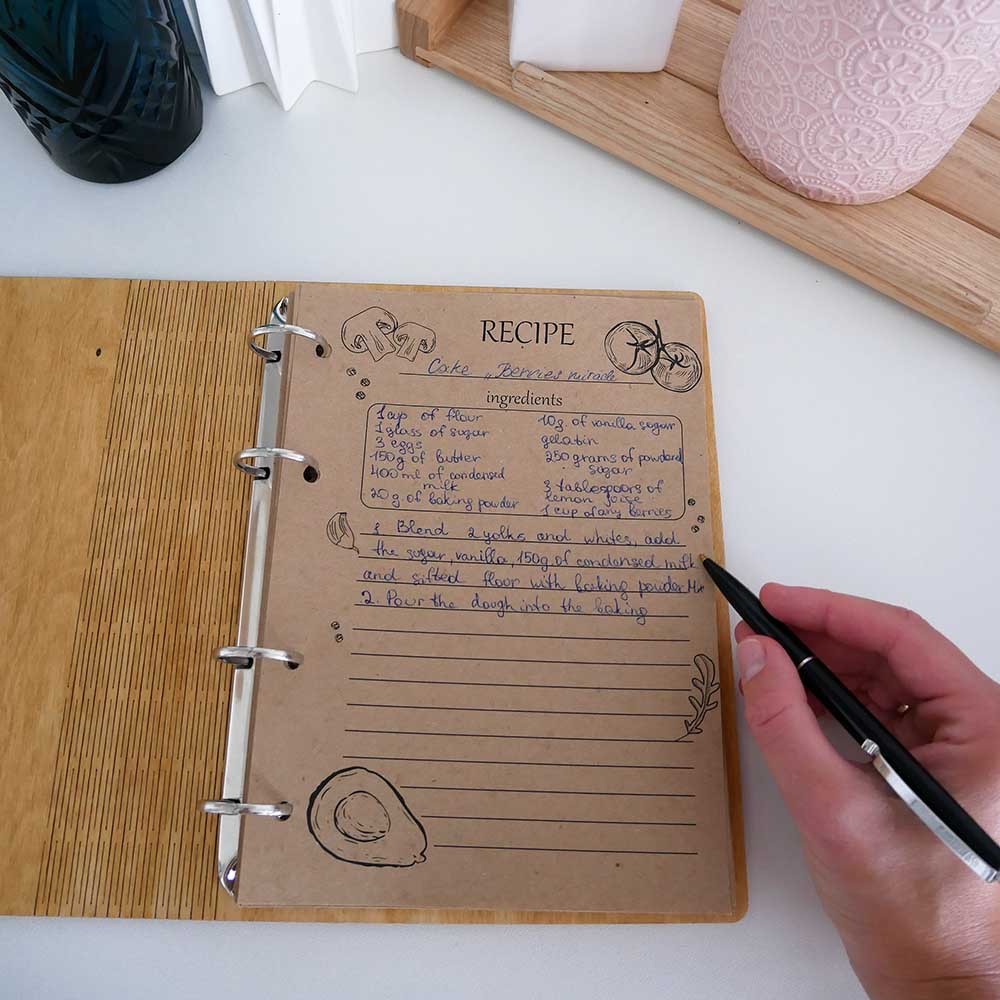 RECIPE
Cake „Berries miracle
ingredients
1 cup of flour
1 glass of sugar
3 eggs
150g of butter
400 ml of condensed
milk
20 g of baking powder
10g. of vanilla sugar
gelatin
250 grams of powdered
sugar
3 tablespoors of
lemon juise
1 cup of any berries
1 Blend 2 yolks and whites, add
the sugar, vanilla, 150g of condensed milk
and sifted flour with baking powder. Mix
2. Pour the dough into the baking